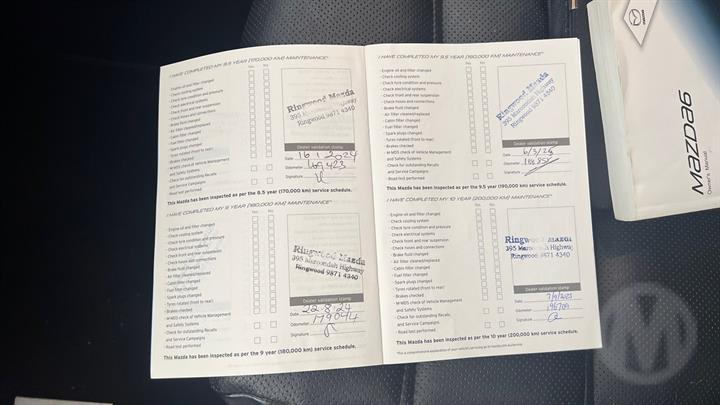 I HAVE COMPLETED MY 8.5 YEAR (170,000 KM) MAINTENANCE*
Yes No
- Engine oil and filter changed
- Check cooling system
- Check tyre condition and pressure
- Check electrical systems
- Check front and rear suspension
- Check hoses and connections
- Brake fluid changed
- Air filter cleaned/replaced
- Cabin filter changed
- Fuel filter changed
- Spark plugs changed
- Tyres rotated (front to rear)
- Brakes checked
- M-MDS check of Vehicle Management
and Safety Systems
- Check for outstanding Recalls
and Service Campaigns
- Road test performed
Ringwood Mazda
395 Maroondah Highway
Ringwood 9871 4340
Dealer validation stamp
Date 16.1.2024
Odometer 169423
Signature
This Mazda has been inspected as per the 8.5 year (170,000 km) service schedule.
I HAVE COMPLETED MY 9 YEAR (180,000 KM) MAINTENANCE*
Yes No
- Engine oil and filter changed
- Check cooling system
- Check tyre condition and pressure
- Check electrical systems
- Check front and rear suspension
- Check hoses and connections
- Brake fluid changed
- Air filter cleaned/replaced
- Cabin filter changed
- Fuel filter changed
- Spark plugs changed
- Tyres rotated (front to rear)
- Brakes checked
- M-MDS check of Vehicle Management
and Safety Systems
- Check for outstanding Recalls
and Service Campaigns
- Road test performed
Ringwood Mazda
395 Maroondah Highway
Ringwood 9871 4340
Dealer validation stamp
Date 22-8-24
Odometer 179044
Signature
This Mazda has been inspected as per the 9 year (180,000 km) service schedule.
I HAVE COMPLETED MY 9.5 YEAR (190,000 KM) MAINTENANCE*
Yes No
- Engine oil and filter changed
- Check cooling system
- Check tyre condition and pressure
- Check electrical systems
- Check front and rear suspension
- Check hoses and connections
- Brake fluid changed
- Air filter cleaned/replaced
- Cabin filter changed
- Fuel filter changed
- Spark plugs changed
- Tyres rotated (front to rear)
- Brakes checked
- M-MDS check of Vehicle Management
and Safety Systems
- Check for outstanding Recalls
and Service Campaigns
- Road test performed
Ringwood Mazda
395 Maroondah Highway
Ringwood 9871 4340
Dealer validation stamp
Date 6/3/25
Odometer
Signature
This Mazda has been inspected as per the 9.5 year (190,000 km) service schedule.
I HAVE COMPLETED MY 10 YEAR (200,000 KM) MAINTENANCE*
Yes No
- Engine oil and filter changed
- Check cooling system
- Check tyre condition and pressure
- Check electrical systems
- Check front and rear suspension
- Check hoses and connections
- Brake fluid changed
- Air filter cleaned/replaced
- Cabin filter changed
- Fuel filter changed
- Spark plugs changed
- Tyres rotated (front to rear)
- Brakes checked
- M-MDS check of Vehicle Management
and Safety Systems
- Check for outstanding Recalls
and Service Campaigns
- Road test performed
Ringwood Mazda
395 Maroondah Highway
Ringwood 9871 4340
Dealer validation stamp
Date
Odometer 196709
Signature
This Mazda has been inspected as per the 10 year (200,000 km) service schedule.
MAZDA6
Owner's Manual